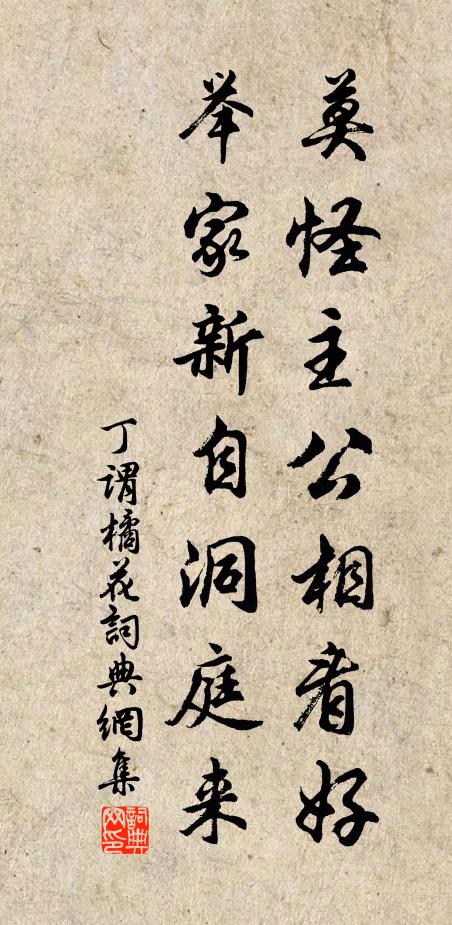 莫怪主公相看好
举家新自洞庭来
丁谓橘花詞典網集
詞典网印